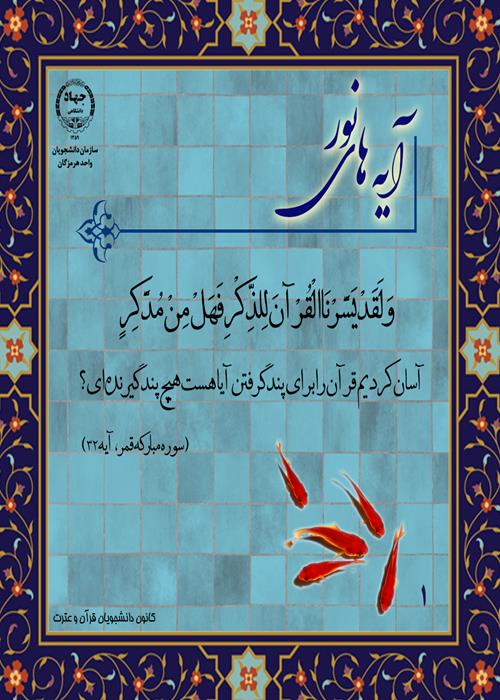 جهاد
دانشگاهی
۱۳۵۹
سازمان دانشجویان
واحد هرمزگان
آیه های نور
وَلَقَدْ يَسَّرْنَا الْقُرْآنَ لِلذِّكْرِ فَهَلْ مِنْ مُدَّكِرٍ
آسان کردیم قرآن را برای پند گرفتن آیا هست هیچ پند گیرنده‌ای؟
(سوره مبارکه قمر، آیه ۳۲)
۱
کانون دانشجویان قرآن و عترت